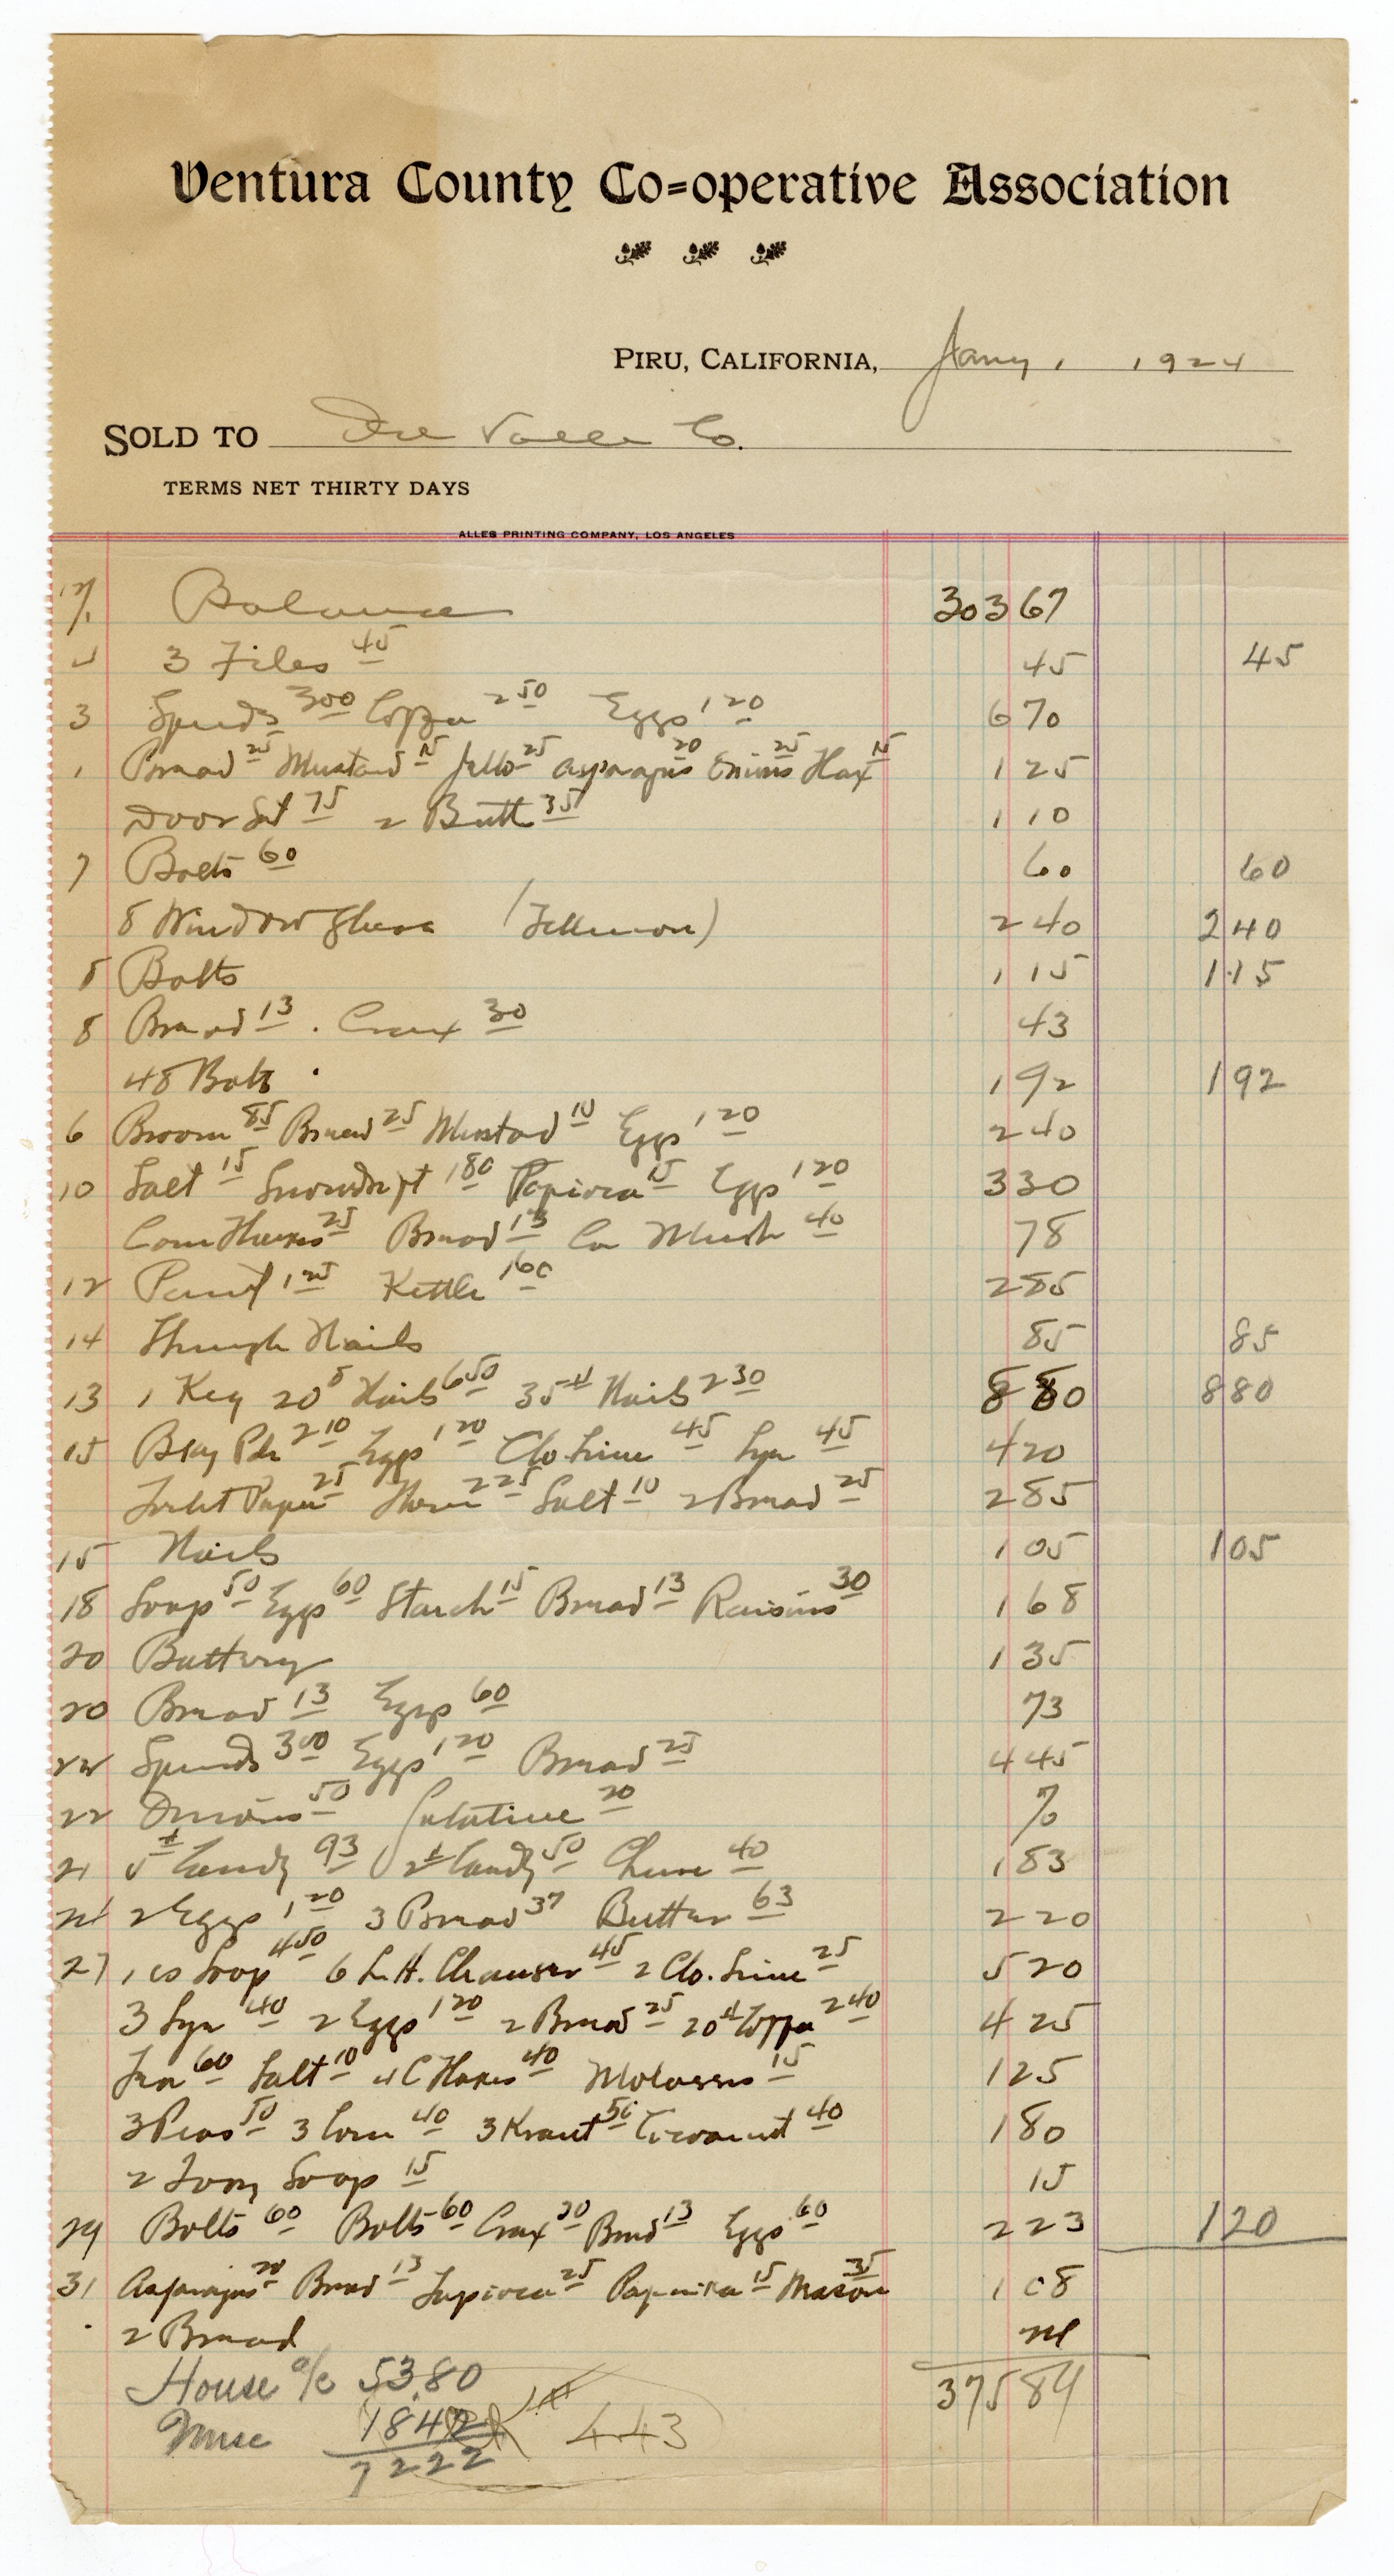 Ventura County Co=operative Association
PIRU, CALIFORNIA, Jany 1 1924
SOLD TO Del Valle Co.
TERMS NET THIRTY DAYS
ALLES PRINTING COMPANY, LOS ANGELES
1/1 Balance 303 67
3 Files 45 45 45
3 Spuds 300 Coffee 250 Eggs 120 6 70
Bread 25 Mustard 15 Jello 25 Asparagus 20 Onions 25 15 1 25
Door Set 75 2 Butt 35 1 10
7 Bolts 60 60 60
8 Window Glass 2 40 2 40
8 Bolts 1 15 1 15
8 Bread 13 Crax 30 43
48 Bolts 1 92 1 92
6 Broom 85 Bread 25 Mustard 10 Eggs 120 2 40
10 Salt 15 Snowdrift 180 Tapioca 15 Eggs 120 3 30
Corn 25 Bread 13 Co Mush 40 78
12 Paint 125 Kettle 160 2 85
14 Shingle Nails 85 85
13 1 Keg 20 Nails 650 35# Nails 230 8 80 8 80
15 Bkg Pdr 210 Eggs 120 Clo Line 45 Lye 45 4 20
Toilet Paper 25 225 Salt 10 2 Bread 25 2 85
15 Nails 1 05 1 05
18 Soap 50 Eggs 60 Starch 15 Bread 13 Raisins 30 1 68
20 Battery 1 35
20 Bread 13 Eggs 60 73
22 Spuds 300 Eggs 120 Bread 25 4 45
22 Onions 50 Gelatine 20 70
21 5# Candy 93 2# Candy 50 Cheese 40 1 83
24 2 Eggs 120 3 Bread 37 Butter 63 2 20
27 1 cs Soap 450 6 L.H. Cleanser 45 2 Clo. Line 25 5 20
3 Lye 40 2 Eggs 120 2 Bread 25 20# Coffee 240 4 25
Tea 60 Salt 10 4 C Flakes 40 Molasses 15 1 25
3 Peas 50 3 Corn 40 3 Kraut 50 Cocoanut 40 1 80
2 Ivory Soap 15 15
29 Bolts 60 Bolts 60 Crax 30 Bred 13 Eggs 60 2 23 1 20
31 Asparagus 20 Bread 13 Tapioca 25 Paprika 15 Mason 35 1 08
2 Bread
375 89
House a/c 53.80
Misc 1842 OK 443
7222